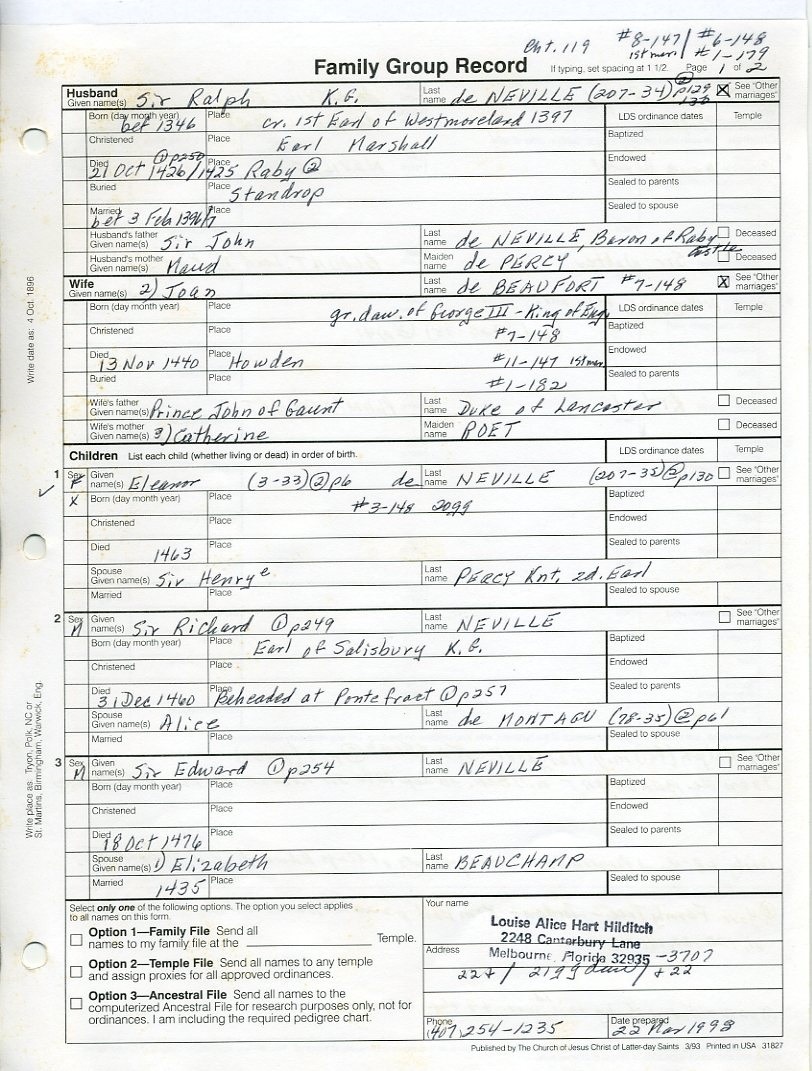 Cht. 119 #8-147 / #6-148
1st marr #1-179
Family Group Record If typing, set spacing at 1 1/2. Page 1 of 2
Husband Given name(s) Sir Ralph K.G. Last name de NEVILLE (207-34) ② p129 X See "Other marriages"
Born (day month year) bef 1346 Place cr. 1st Earl of Westmoreland 1397 LDS ordinance dates Temple
Christened Place Earl Marshall Baptized
Died ① p250 21 Oct 1426/1425 Place Raby ② Endowed
Buried Place Standrop Sealed to parents
Married bef 3 Feb 1396/7 Place Sealed to spouse
Husband's father Given name(s) Sir John Last name de NEVILLE, Baron of Raby Castle Deceased
Husband's mother Given name(s) Maud Maiden name de PERCY Deceased
Wife Given name(s) 2) Joan Last name de BEAUFORT #7-148 X See "Other marriages"
Born (day month year) Place gr. daw. of George III - King of Eng. LDS ordinance dates Temple
Christened Place #7-148 Baptized
Died 13 Nov 1440 Place Howden #11-147 1st marr Endowed
Buried Place #1-182 Sealed to parents
Wife's father Given name(s) Prince John of Gaunt Last name Duke of Lancaster Deceased
Wife's mother Given name(s) 3) Catherine Maiden name ROET Deceased
Children List each child (whether living or dead) in order of birth. LDS ordinance dates Temple
1 Sex F Given name(s) Eleanor (3-33) ② p6 de Last name NEVILLE (207-35) ② p130 See "Other marriages"
X Born (day month year) Place #3-148 2099 Baptized
Christened Place Endowed
Died 1463 Place Sealed to parents
Spouse Given name(s) Sir Henrye Last name PERCY Knt, 2d. Earl
Married Place Sealed to spouse
2 Sex M Given name(s) Sir Richard ① p249 Last name NEVILLE See "Other marriages"
Born (day month year) Place Earl of Salisbury K.G. Baptized
Christened Place Endowed
Died 31 Dec 1460 Place Beheaded at Pontefract ① p257 Sealed to parents
Spouse Given name(s) Alice Last name de MONTAGU (78-35) ② p61
Married Place Sealed to spouse
3 Sex M Given name(s) Sir Edward ① p254 Last name NEVILLE See "Other marriages"
Born (day month year) Place Baptized
Christened Place Endowed
Died 18 Oct 1476 Place Sealed to parents
Spouse Given name(s) 1) Elizabeth Last name BEAUCHAMP
Married 1435 Place Sealed to spouse
Write date as: 4 Oct. 1896
Write place as: Tryon, Polk, NC or
St. Martins, Birmingham, Warwick, Eng.
Select only one of the following options. The option you select applies
to all names on this form.
Option 1—Family File Send all
names to my family file at the Temple.
Option 2—Temple File Send all names to any temple
and assign proxies for all approved ordinances.
Option 3—Ancestral File Send all names to the
computerized Ancestral File for research purposes only, not for
ordinances. I am including the required pedigree chart.
Your name
Louise Alice Hart Hilditch
2248 Canterbury Lane
Address Melbourne, Florida 32935 -3707
Phone (407) 254-1235 Date prepared 22 Mar 1998
Published by The Church of Jesus Christ of Latter-day Saints 3/93 Printed in USA 31827